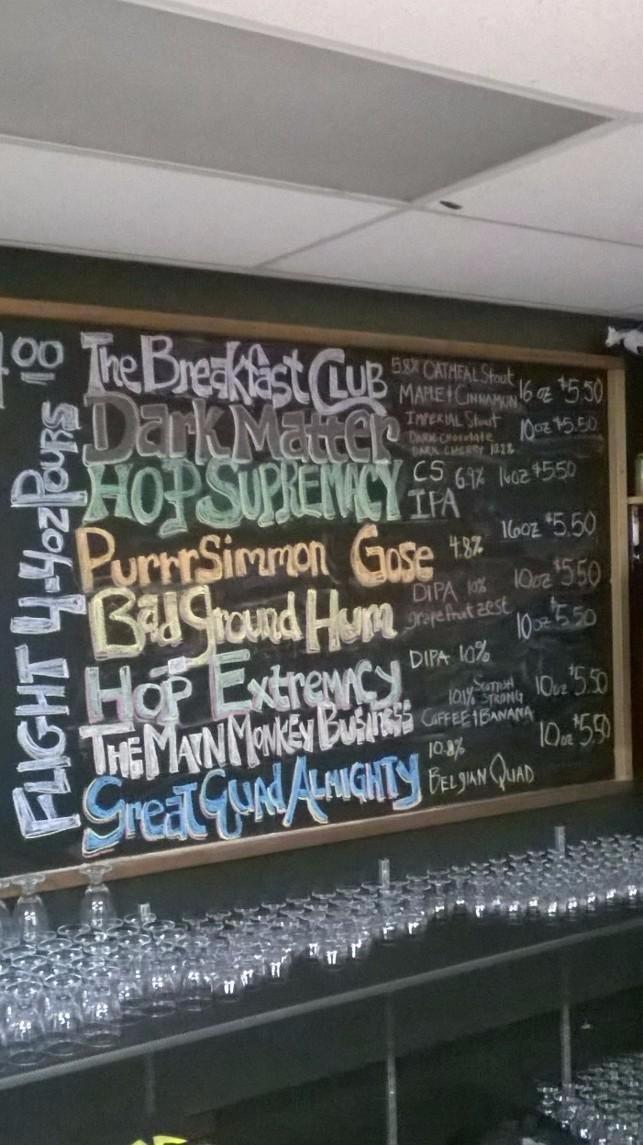 00
FLIGHT 4-4oz Pours
The Breakfast CLUB
5.8% OATMEAL Stout
MAPLE & CINNAMON
16 oz $5.50
Dark Matter
IMPERIAL Stout
DARK CHOCOLATE
DARK CHERRY
10oz $5.50
HOP SUPREMACY
CS 6.9%
IPA
16oz $5.50
PurrrSimmon Gose
4.8%
16oz $5.50
Bad Ground Hum
DIPA 10%
grapefruit zest
10oz $5.50
Hop Extremacy
DIPA 10%
10oz $5.50
THE MAYN MONKEY BUSINESS
10.1% SCOTTISH
STRONG
COFFEE & BANANA
10oz $5.50
Great Quad ALMIGHTY
10.8%
BELGIAN QUAD
10oz $5.50